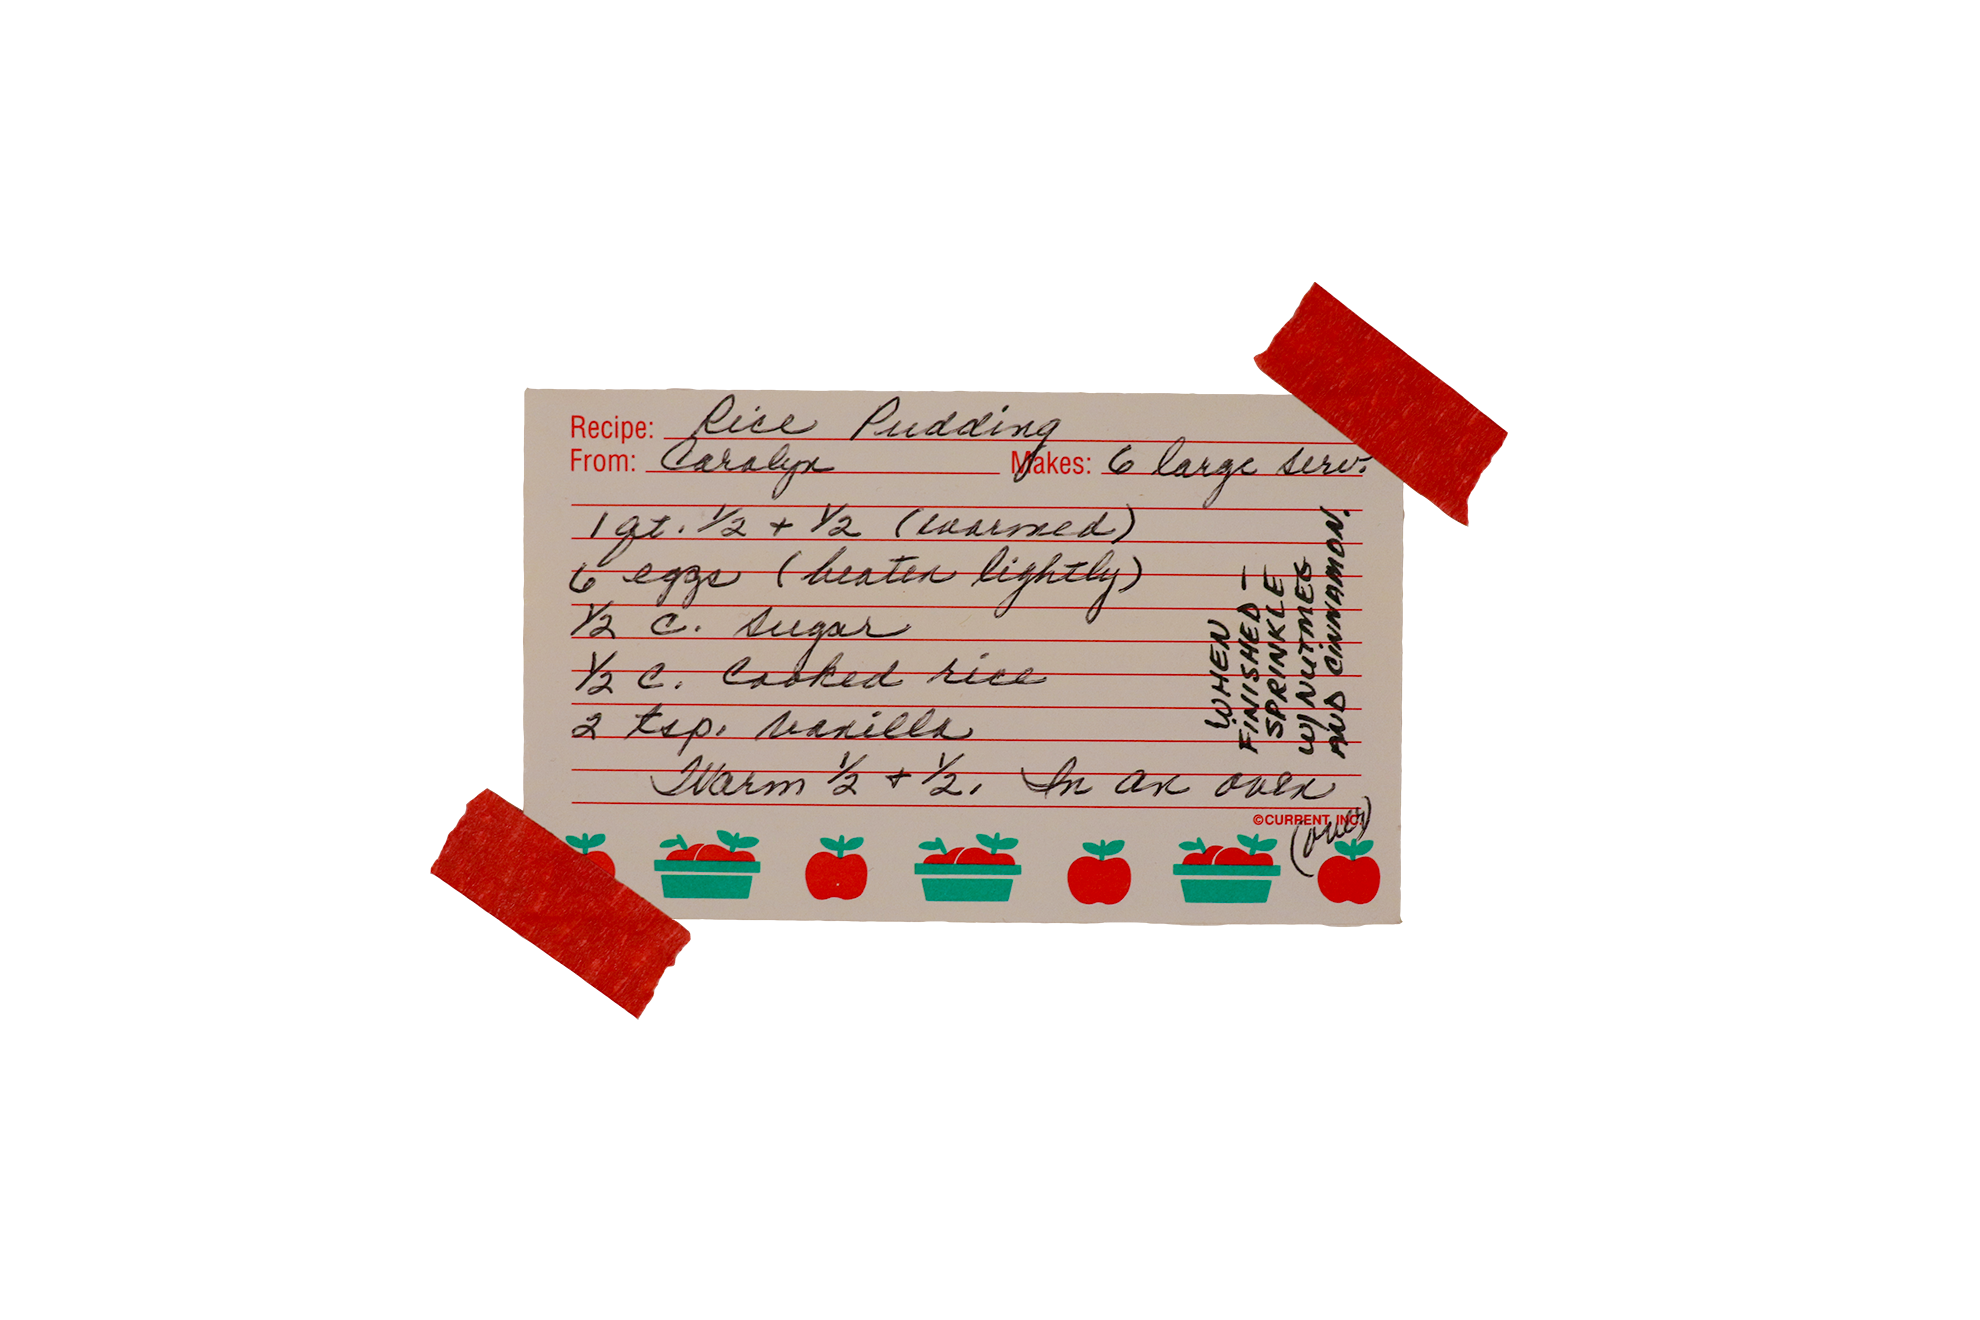 Recipe: Rice Pudding
From: Carolyn Makes: 6 large serv.
1 qt. 1/2 + 1/2 (warmed)
6 eggs (beaten lightly)
1/2 c. sugar
1/2 c. cooked rice
2 tsp. vanilla
Warm 1/2 + 1/2. In an oven
(over)
©CURRENT, INC.
WHEN
FINISHED —
SPRINKLE
W/ NUTMEG
AND CINNAMON.